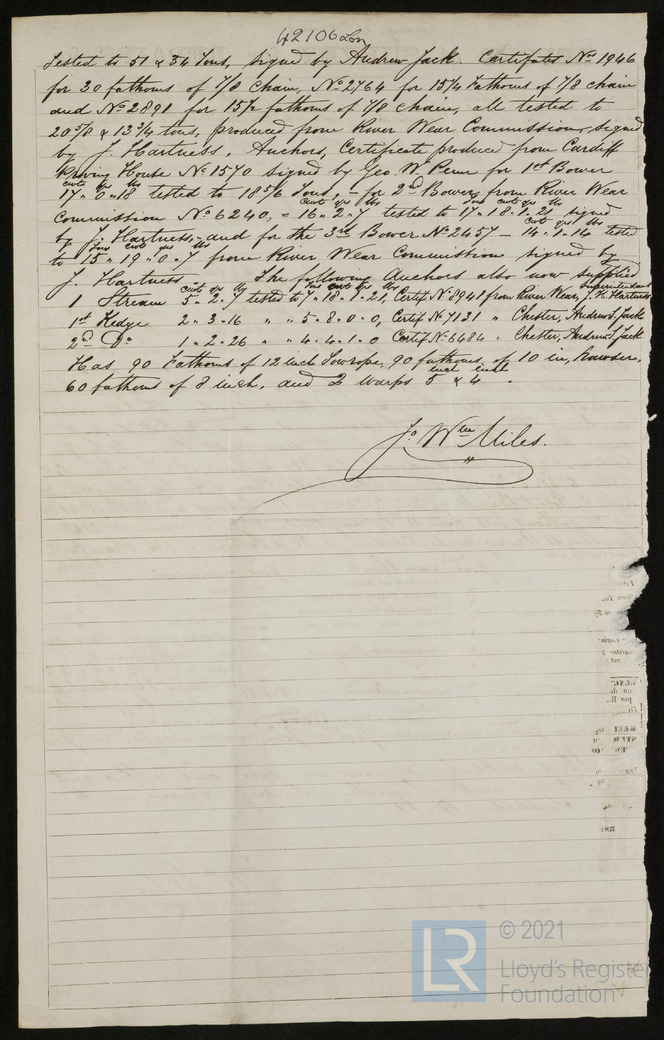 42106 Lon
Tested to 51 & 34 Tons, signed by Andrew Jack. Certificates No 1946
for 30 fathoms of 7/8 Chain, No 2764 for 15 1/4 Fathoms of 7/8 chain
and No 2891 for 15 1/2 fathoms of 7/8 chain, all tested to
20 5/8 & 13 3/4 tons, produced from River Wear Commission, signed
by J. Hartness. Anchors, Certificate produce from Cardiff
Proving House No 1570 signed by Geo. W. Penn for 1st Bower
cwts qrs lbs
17 " 0 " 18 tested to 18 5/6 Tons, - for 2nd Bower, from River Wear
cwts qrs lbs tons cwts qrs lbs
Commission No 6240, = 16 " 2 " 7 tested to 17 " 18 " 1 " 21, signed
cwts qrs lbs
by J. Hartness, and for the 3rd Bower No 2457 - 14 " 1 " 14 tested
Tons cwts qrs lbs
to 15 " 19 " 0 " 7 from River Wear Commission signed by
J. Hartness - The following Anchors also now supplied
cwts qrs lbs Tons cwts qrs lbs Superintendant
1 Stream 5 " 2 " 7 tested to 7 " 18 " 1 " 21, Certif No 8941 from River Wear, J. H. Hartness
1st Kedge 2 " 3 " 16 " " 5 " 8 " 0 " 0, Certif No 7121 " Chester, Andrew Jack
2nd Do 1 " 2 " 26 " " 4 " 4 " 1 " 0 Certif No 6484 " Chester, Andrew Jack
Has 90 Fathoms of 12 inch Towrope, 90 fathoms, of 10 in, Hawser,
inch inch
60 fathom of 8 inch, and 2 warps 5 & 4 .
Jo Wm Miles.
LR
© 2021
Lloyd's Register
Foundation